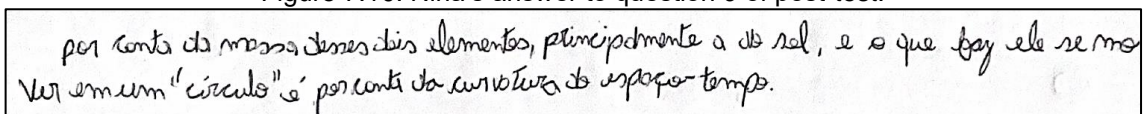 por conta da massa desses dois elementos, principalmente a do sol, e o que faz ele se mo
ver em um "círculo" é por conta da curvatura do espaço-tempo.